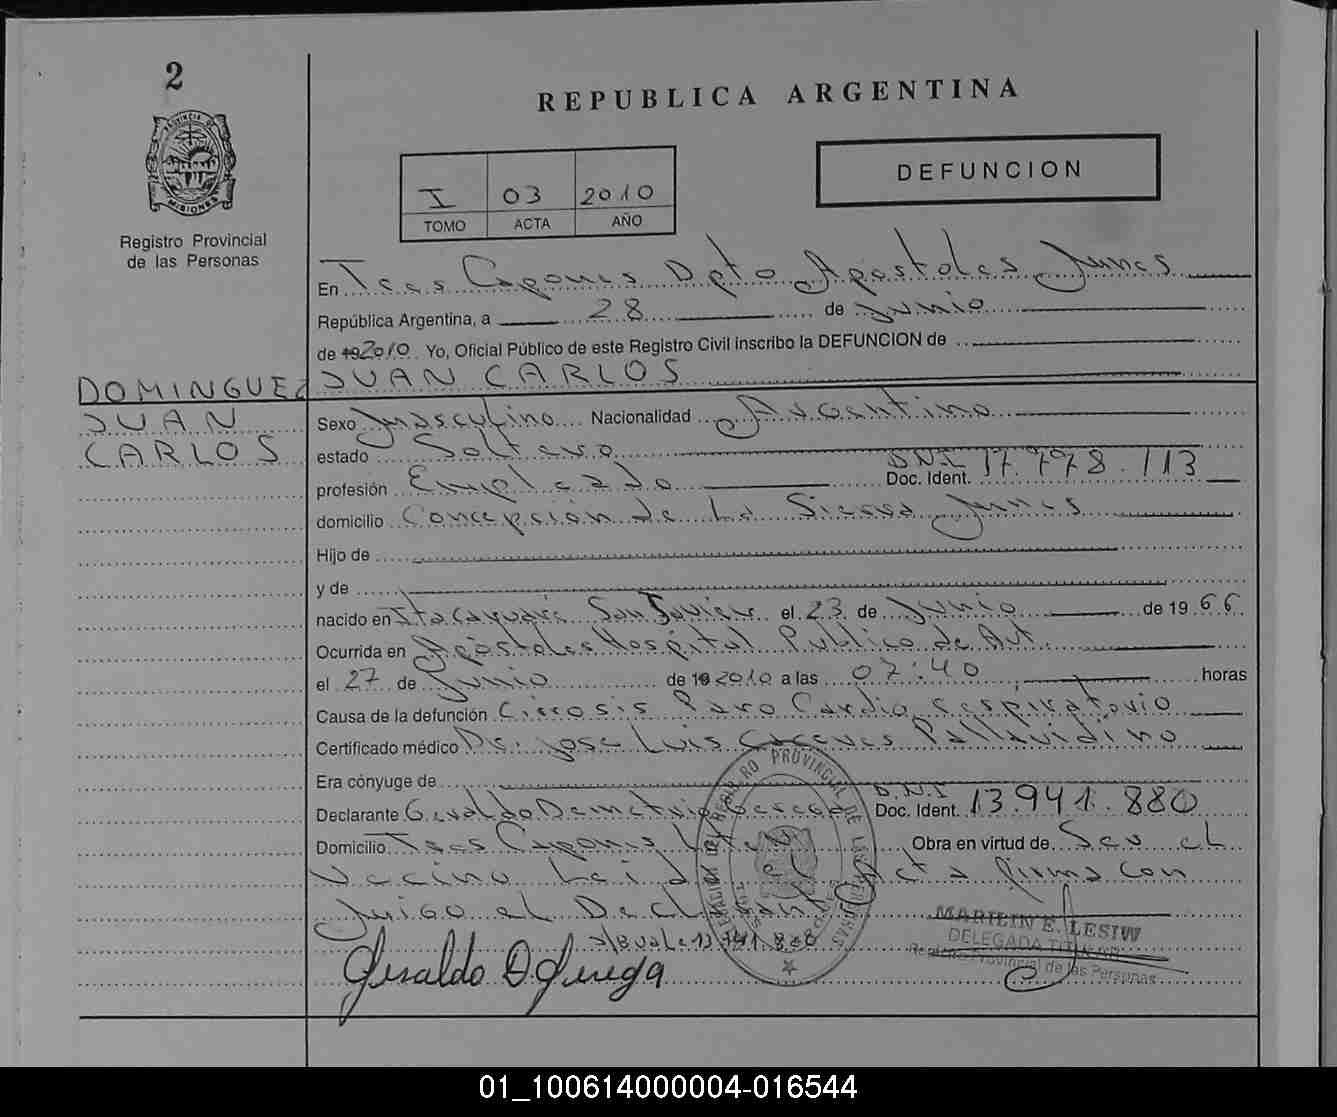 2
REPUBLICA ARGENTINA
PROVINCIA DE MISIONES
Registro Provincial
de las Personas
DEFUNCION
I 03 2010
TOMO ACTA AÑO
En Tres Capones Dpto Apostoles Mnes
República Argentina, a 28 de Junio
de 19 2010. Yo, Oficial Público de este Registro Civil inscribo la DEFUNCION de
DOMINGUEZ JUAN CARLOS
JUAN
CARLOS
Sexo Masculino Nacionalidad Argentino
estado Soltero
profesión Empleado D.N.I Doc. Ident. 17.778.113
domicilio Concepción de La Sierra Mnes
Hijo de
y de
nacido en Itacaruaré San Javier el 23 de Junio de 1966
Ocurrida en Apóstoles Hospital Publico de Aut.
el 27 de Junio de 19 2010 a las 07:40 horas
Causa de la defunción Cirrosis Paro Cardio respiratorio
Certificado médico Dr. Jose Luis
Era cónyuge de
Declarante Geraldo Demetrio D.N.I Doc. Ident. 13.941.880
Domicilio Tres Capones Obra en virtud de Ser el
Vecino Leida el Acta firma con
migo el Declarante
s/B vale 13.941.880
MARILIN E. LESIW
DELEGADA TITULAR
Registro Provincial de las Personas
Geraldo D
01_100614000004-016544